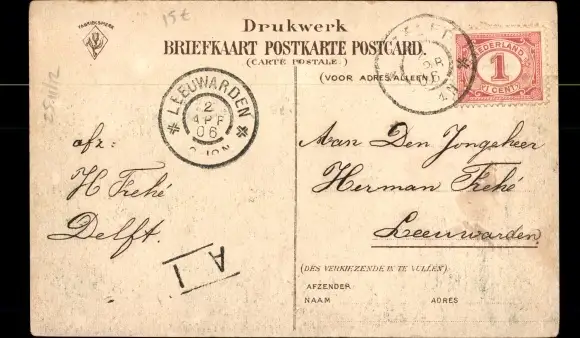 15 €
FABRIEKSMERK
Drukwerk
BRIEFKAART POSTKARTE POSTCARD.
(CARTE POSTALE.)
(VOOR ADRES ALLEEN)
DELFT
06
NEDERLAND
1
CENT
LEEUWARDEN
2
APR
06
afz:
H Frehé
Delft.
Aan Den Jongeheer
Herman Frehé
Leeuwarden
A
1
(DES VERKIEZENDE IN TE VULLEN)
AFZENDER
NAAM ADRES